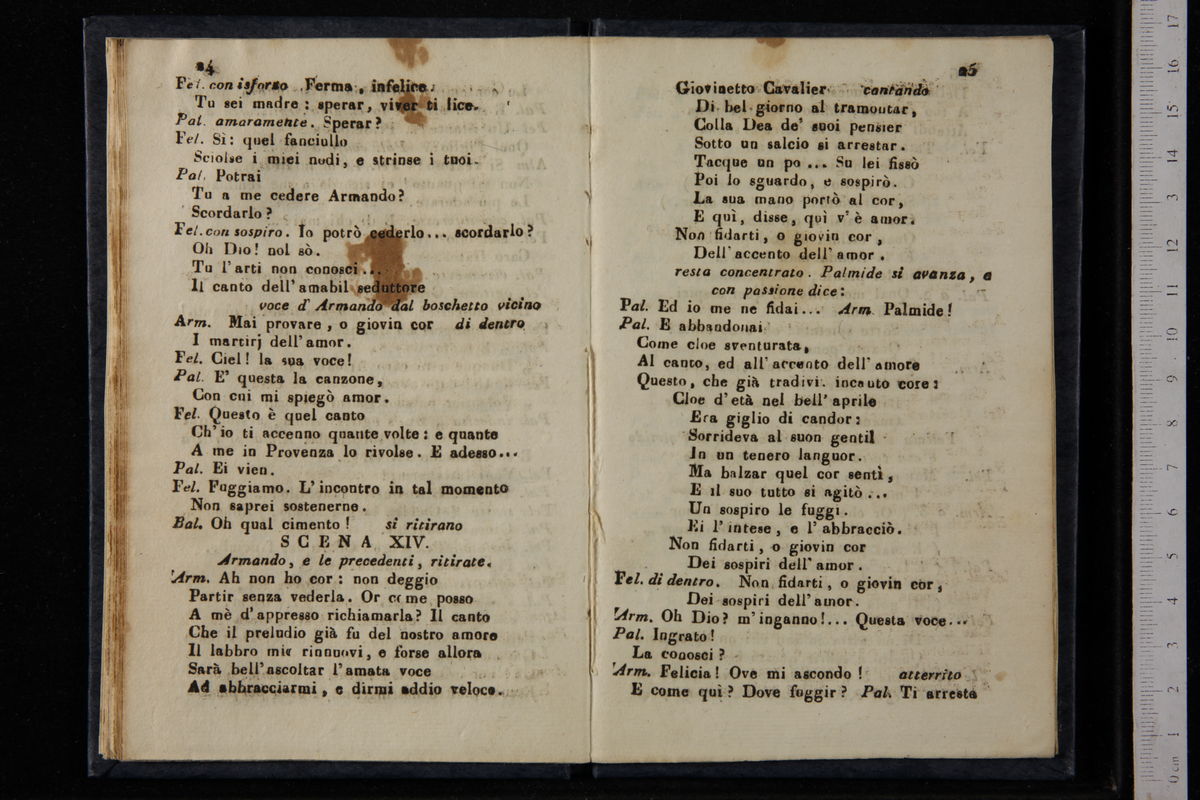 24
Fel. con isforzo Ferma, infelice:
Tu sei madre: sperar, viver ti lice.
Pal. amaramente. Sperar?
Fel. Sì: quel fanciullo
Sciolse i miei nodi, e strinse i tuoi.
Pal. Potrai
Tu a me cedere Armando?
Scordarlo?
Fel. con sospiro. Io potrò cederlo... scordarlo?
Oh Dio! nol sò.
Tu l'arti non conosci...
Il canto dell'amabil seduttore
voce d'Armando dal boschetto vicino
Arm. Mai provare, o giovin cor di dentro
I martirj dell'amor.
Fel. Ciel! la sua voce!
Pal. E' questa la canzone,
Con cui mi spiegò amor.
Fel. Questo è quel canto
Ch'io ti accenno quante volte: e quante
A me in Provenza lo rivolse. E adesso...
Pal. Ei vien.
Fel. Fuggiamo. L'incontro in tal momento
Non saprei sostenerne.
Bal. Oh qual cimento! si ritirano
SCENA XIV.
Armando, e le precedenti, ritirate.
Arm. Ah non ho cor: non deggio
Partir senza vederla. Or come posso
A mè d'appresso richiamarla? Il canto
Che il preludio già fu del nostro amore
Il labbro mio rinnuovi, e forse allora
Sarà bell'ascoltar l'amata voce
Ad abbracciarmi, e dirmi addio veloce.
25
Giovinetto Cavalier cantando
Di bel giorno al tramontar,
Colla Dea de' suoi pensier
Sotto un salcio si arrestar.
Tacque un po ... Su lei fissò
Poi lo sguardo, e sospirò.
La sua mano portò al cor,
E quì, disse, quì v'è amor.
Non fidarti, o giovin cor,
Dell'accento dell'amor.
resta concentrato. Palmide si avanza, e
con passione dice:
Pal. Ed io me ne fidai... Arm. Palmide!
Pal. E abbandonai
Come cloe sventurata,
Al canto, ed all'accento dell'amore
Questo, che già tradivi. incauto core:
Cloe d'età nel bell'aprile
Era giglio di candor:
Sorrideva al suon gentil
In un tenero languor.
Ma balzar quel cor sentì,
E il suo tutto si agitò...
Un sospiro le fuggì.
Ei l'intese, e l'abbracciò.
Non fidarti, o giovin cor
Dei sospiri dell'amor.
Fel. di dentro. Non fidarti, o giovin cor,
Dei sospiri dell'amor.
Arm. Oh Dio? m'inganno!... Questa voce...
Pal. Ingrato!
La conosci?
Arm. Felicia! Ove mi ascondo! atterrito
E come quì? Dove fuggir? Pal. Ti arresta
17
16
15
14
13
12
11
10
9
8
7
6
5
4
3
2
1
0 cm